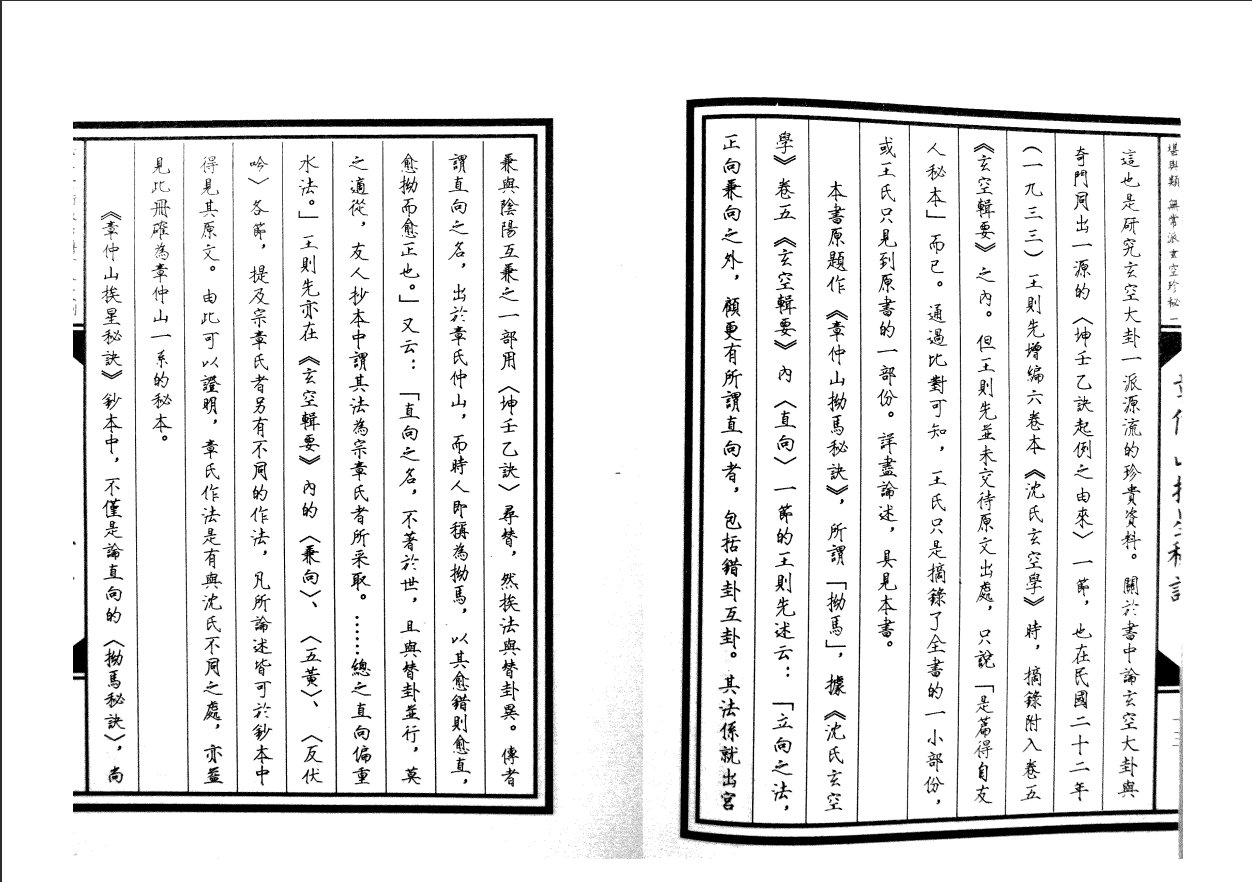 堪輿類 無常派玄空珍秘 一
這也是研究玄空大卦一派源流的珍貴資料。關於書中論玄空大卦與
奇門同出一源的〈坤壬乙訣起例之由來〉一節，也在民國二十二年
(一九三三)王則先增編六卷本《沈氏玄空學》時，摘錄附入卷五
《玄空輯要》之內。但王則先並未交待原文出處，只說「是篇得自友
人秘本」而已。通過比對可知，王氏只是摘錄了全書的一小部份，
或王氏只見到原書的一部份。詳盡論述，具見本書。
本書原題作《章仲山拗馬秘訣》，所謂「拗馬」，據《沈氏玄空
學》卷五《玄空輯要》內〈直向〉一節的王則先述云：「立向之法，
正向兼向之外，顧更有所謂直向者，包括錯卦互卦。其法係就出宮
兼與陰陽互兼之一部用〈坤壬乙訣〉尋替，然挨法與替卦異。傳者
謂直向之名，出於章氏仲山，而時人即稱為拗馬，以其愈錯則愈直，
愈拗而愈正也。」又云：「直向之名，不著於世，且與替卦並行，莫
之適從，友人抄本中謂其法為宗章氏者所采取。……總之直向偏重
水法。」王則先亦在《玄空輯要》內的〈兼向〉、〈五黃〉、〈反伏
吟〉各節，提及宗章氏者另有不同的作法，凡所論述皆可於鈔本中
得見其原文。由此可以證明，章氏作法是有與沈氏不同之處，亦益
見此冊確為章仲山一系的秘本。
《章仲山挨星秘訣》鈔本中，不僅是論直向的〈拗馬秘訣〉，尚